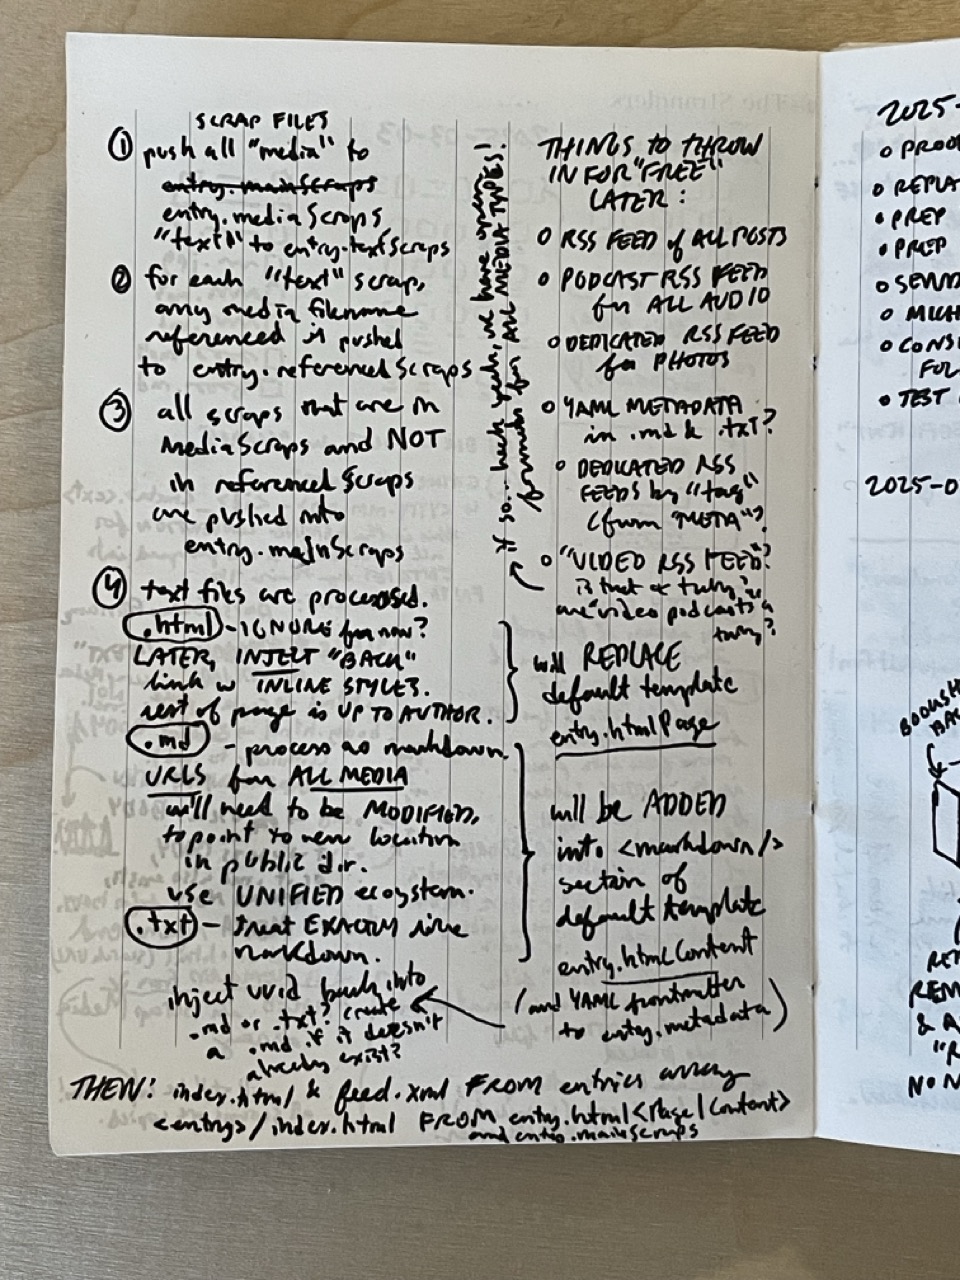 SCRAP FILES
① push all "media" to
entry.mainScraps
entry.mediaScraps
"text" to entry.textScraps
② for each "text" scrap,
any media filename
referenced is pushed
to entry.referencedScraps
③ all scraps that are in
mediaScraps and NOT
in referencedScraps
are pushed into
entry.mainScraps
④ text files are processed.
.html - IGNORE for now?
LATER, INJECT "BACK"
link w INLINE STYLES.
rest of page is UP TO AUTHOR.
.md - process as markdown
URLS for ALL MEDIA
will need to be MODIFIED,
to point to new location
in public dir.
use UNIFIED ecosystem.
.txt - treat EXACTLY like
markdown.
inject uuid back into
.md or .txt? create
a .md if it doesn't
already exist?
will REPLACE
default template
entry.htmlPage
will be ADDED
into <markdown/>
section of
default template
entry.htmlContent
(and YAML frontmatter
to entry.metadata)
THINGS TO THROW
IN FOR "FREE"
LATER:
o RSS FEED of ALL POSTS
o PODCAST RSS FEED
for ALL AUDIO
o DEDICATED RSS FEED
for PHOTOS
o YAML METADATA
in .md & .txt?
o DEDICATED RSS
FEEDS by "tag"
(from "META")?
o "VIDEO RSS FEED"?
is that a thing?
are "video podcasts" a
thing?
if so.. heck yeah, we have open
formats for ALL MEDIA TYPES!
THEN: index.html & feed.xml FROM entries array
<entry>/index.html FROM entry.html<Page|Content>
and entry.mainScraps
2025-
o PROO
o REPLA
o PREP
o PREP
o SEND
o MICH
o CONS
FOR
o TEST
2025-0
BOOKSH
BA
REP
REM
& A
"R
NO N